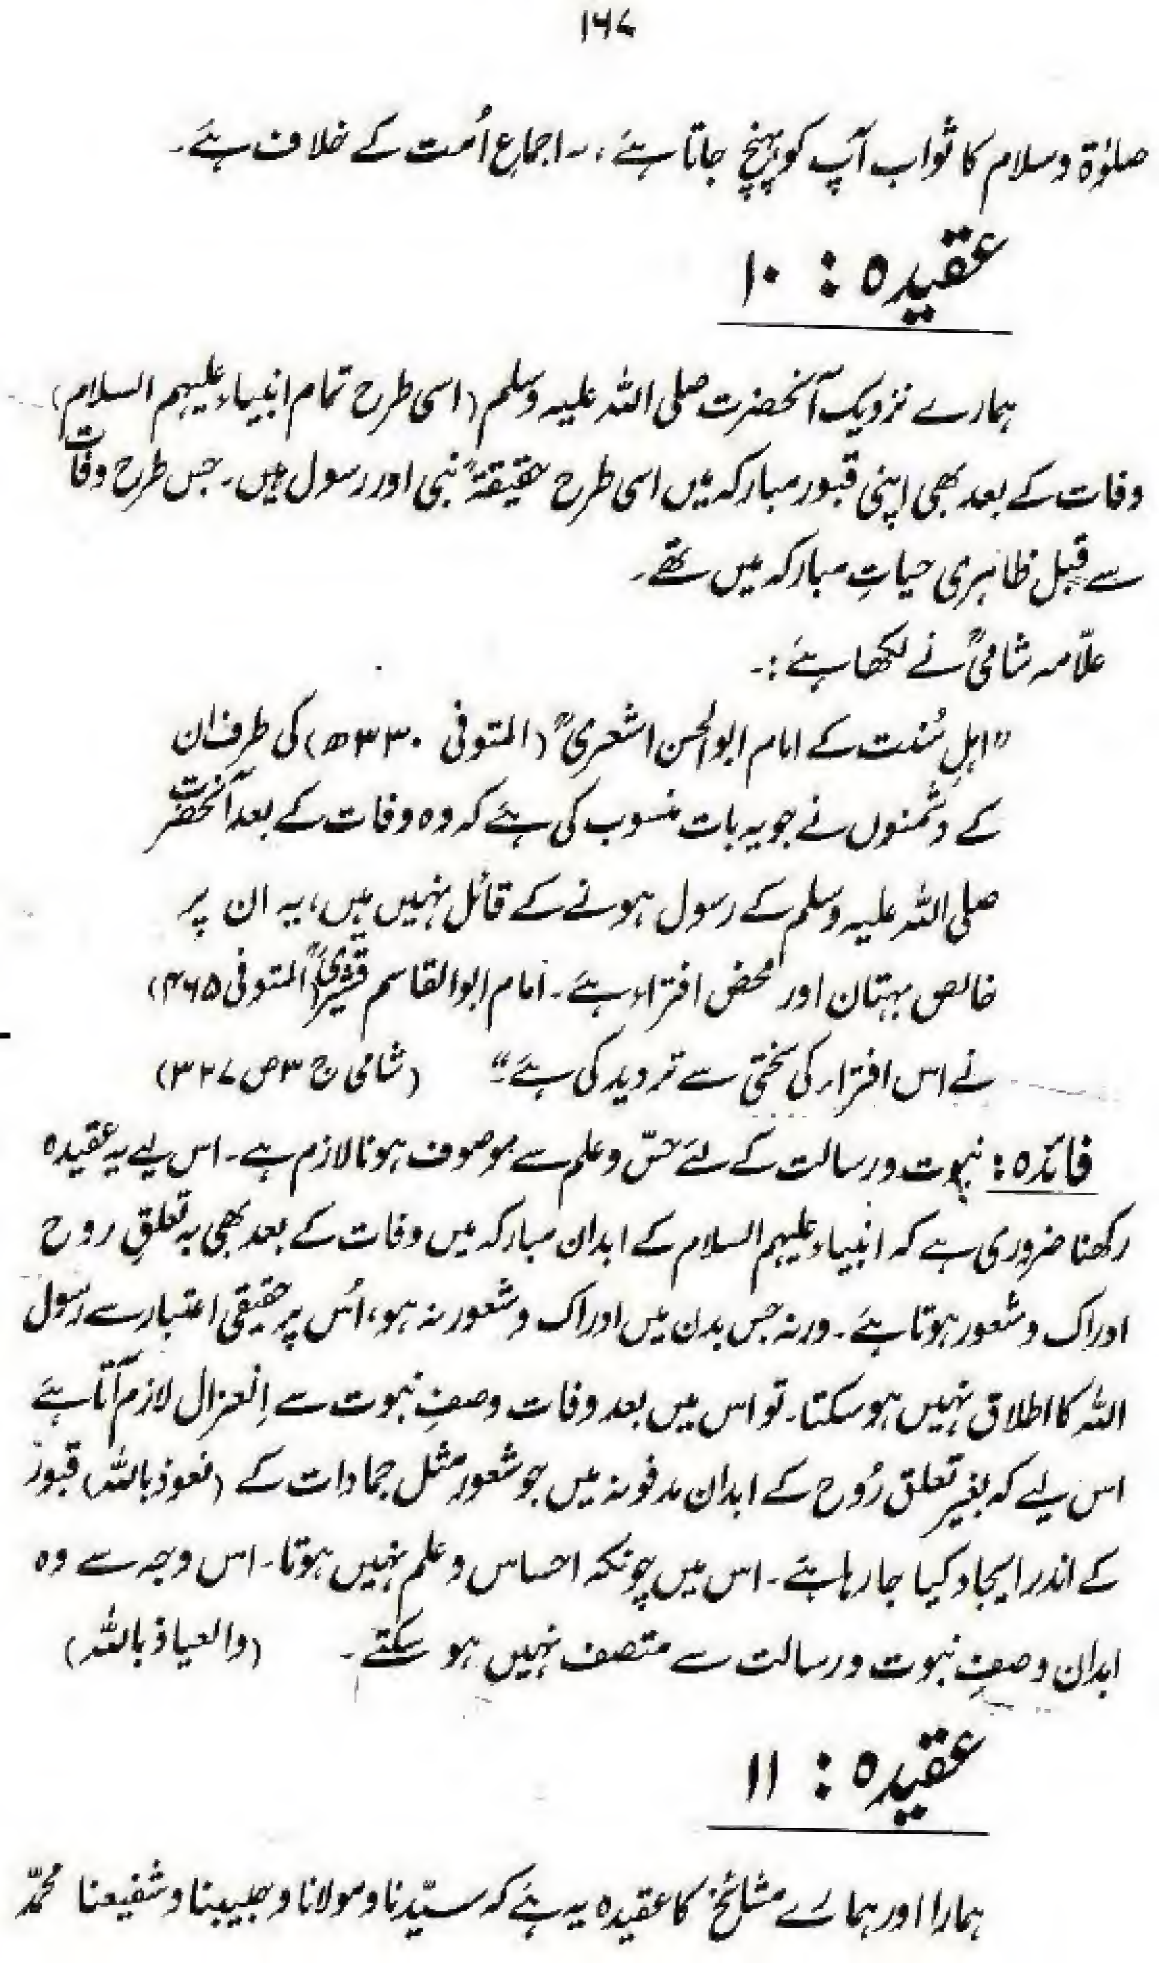 ۱۶۷
صلوٰۃ وسلام کا ثواب آپ کو پہنچ جاتا ہے، ۔ اجماعِ اُمت کے خلاف ہے۔
عقیدہ : ۱۰
ہمارے نزدیک آنحضرت صلی اللہ علیہ وسلم (اسی طرح تمام انبیاء علیہم السلام)
وفات کے بعد بھی اپنی قبور مبارکہ میں اسی طرح حقیقۃً نبی اور رسول ہیں۔ جس طرح وفات
سے قبل ظاہری حیاتِ مبارکہ میں تھے۔
علّامہ شامیؒ نے لکھا ہے :۔
"اہلِ سُنت کے امام ابوالحسن اشعریؒ (المتوفی ۳۳۰ھ) کی طرف ان
کے دشمنوں نے جو یہ بات منسوب کی ہے کہ وہ وفات کے بعد آنحضرت
صلی اللہ علیہ وسلم کے رسول ہونے کے قائل نہیں ہیں، یہ ان پر
خالص بہتان اور محض افتراء ہے۔ امام ابوالقاسم قشیریؒ (المتوفی ۴۶۵)
نے اس افتراء کی سختی سے تردید کی ہے۔" (شامی ج ۳ ص ۳۲۷)
فائدہ: نبوت ورسالت کے لئے حسّ وعلم سے موصوف ہونا لازم ہے۔ اس لیے یہ عقیدہ
رکھنا ضروری ہے کہ انبیاء علیہم السلام کے ابدان مبارکہ میں وفات کے بعد بھی بہ تعلقِ روح
ادراک وشعور ہوتا ہے۔ ورنہ جس بدن میں ادراک وشعور نہ ہو، اُس پر حقیقی اعتبار سے رسول
اللہ کا اطلاق نہیں ہو سکتا۔ تو اس میں بعد وفات وصفِ نبوت سے اِنعزال لازم آتا ہے
اس لیے کہ بغیر تعلق رُوح کے ابدان مدفونہ میں جو شعور مثل جمادات کے (نعوذ باللہ) قبور
کے اندر ایجاد کیا جا رہا ہے۔ اس میں چونکہ احساس وعلم نہیں ہوتا۔ اس وجہ سے وہ
ابدان وصفِ نبوت ورسالت سے متصف نہیں ہو سکتے۔ (والعیاذ باللہ)
عقیدہ : ۱۱
ہمارا اور ہمارے مشائخ کا عقیدہ یہ ہے کہ سیّدنا ومولانا وحبیبنا وشفیعنا محمّد